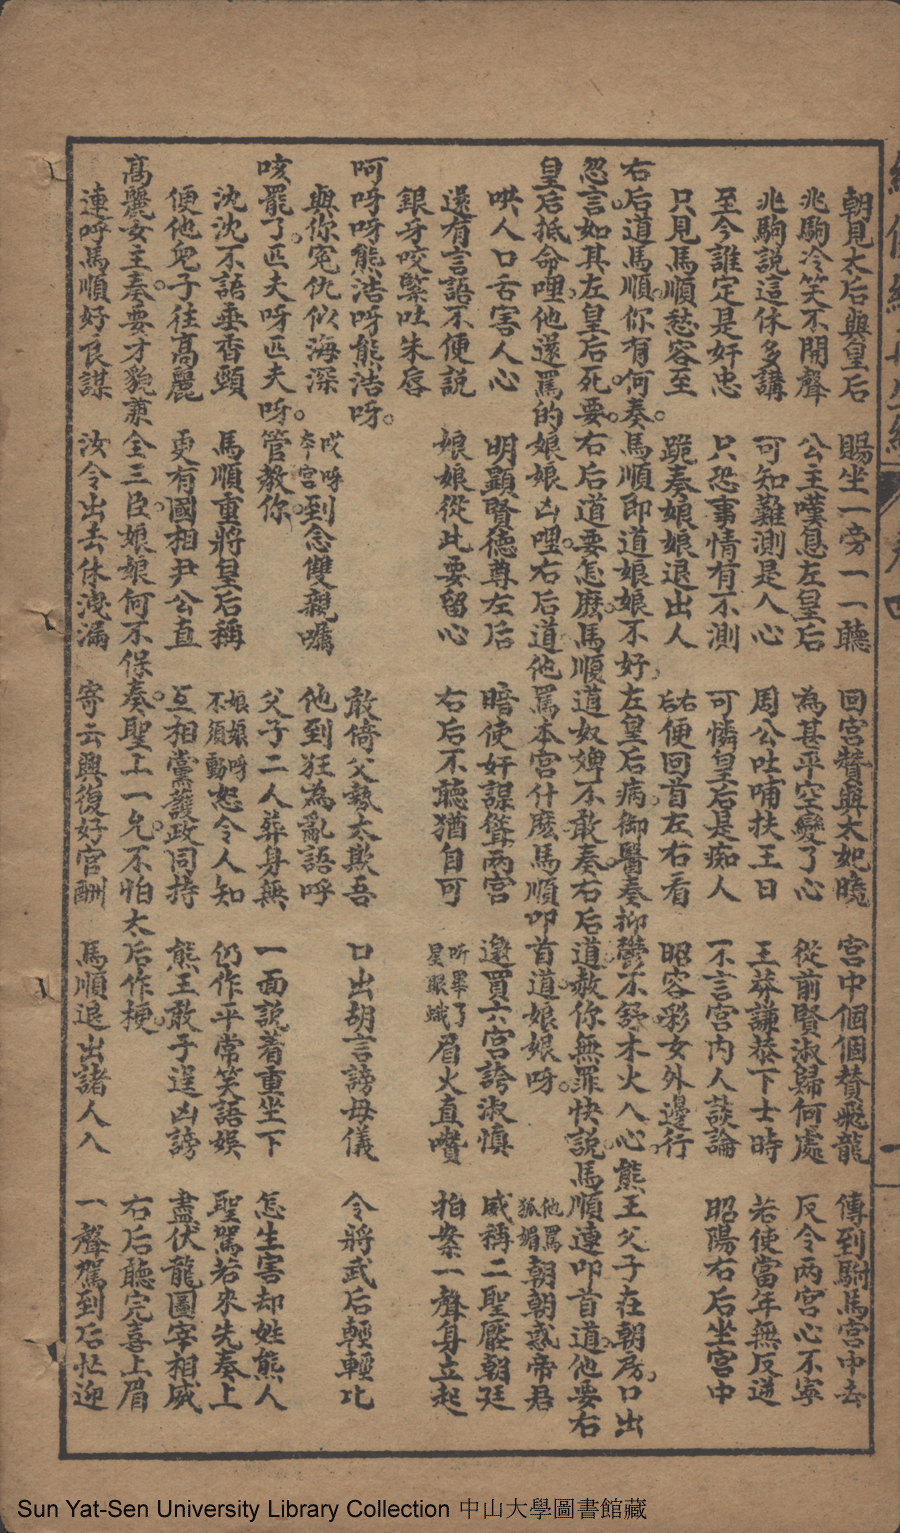 朝見太后與皇后　賜坐一旁一一聽　回宮贊與太妃曉　宮中個個贊飛龍　傳到駙馬宮中去
兆駒冷笑不開聲　公主嘆息左皇后　為甚平空變了心　從前賢淑歸何處　反令兩宮心不寧
兆駒説這休多講　可知難測是人心　周公吐哺扶王日　王莽謙恭下士時　若使當年無反逆
至今誰定是奸忠　只恐事情有不測　可憐皇后是痴人　不言宮內人談論　昭陽右后坐宮中
只見馬順愁容至　跪奏娘娘退出人　右后便回首左右看　昭容彩女外邊行
右后道馬順你有何奏。馬順即道娘娘不好左皇后病。御醫奏抑鬱不舒木火入心。熊王父子在朝房。口出
怨言如其左皇后死。要右后道要怎麽。馬順道奴婢不敢奏。右后道赦你無罪快説。馬順連叩首道。他要右
皇后抵命哩。他還罵的娘娘凶哩。右后道他罵本宮什麽馬順叩首道。娘娘呀。他罵狐媚朝朝惑帝君
哄人口舌害人心　明顯賢德尊左后　暗使奸謀聳兩宮　邀買六宮誇淑慎　威稱二聖壓朝廷
還有言語不便説　娘娘從此要留心　右后不聽猶自可　听畢了星眼蛾眉火直噴　拍案一聲身立起
銀牙咬緊吐朱唇
呵呀呀熊浩呀熊浩呀。　敢倚父勢太欺吾　口出胡言謗母儀　令將武后輕輕比
與你冤仇似海深　哎呀本宮到念雙親囑　他到狂為亂語呼
咳罷了。匹夫呀匹夫呀。管教你。父子二人葬身無　一面説着重坐下　怎生害却姓熊人
沈沈不語垂香頭　馬順重將皇后稱　娘娘呀不須動怒令人知　仍作平常笑語娛　聖駕若來先奏上
便他兒子往高麗　更有國相尹公直　互相黨護政同持　熊王敢子逞凶謗　盡伏龍圖宰相威
高麗女主奏。要才貌兼全三臣。娘娘何不保奏。聖上一允。不怕太后作梗。　右后聽完喜上眉
連呼馬順好良謀　汝令出去休洩漏　寄云興復好官酬　馬順退出諸人入　一聲駕到后忙迎
卷四
一
Sun Yat-Sen University Library Collection 中山大學圖書館藏